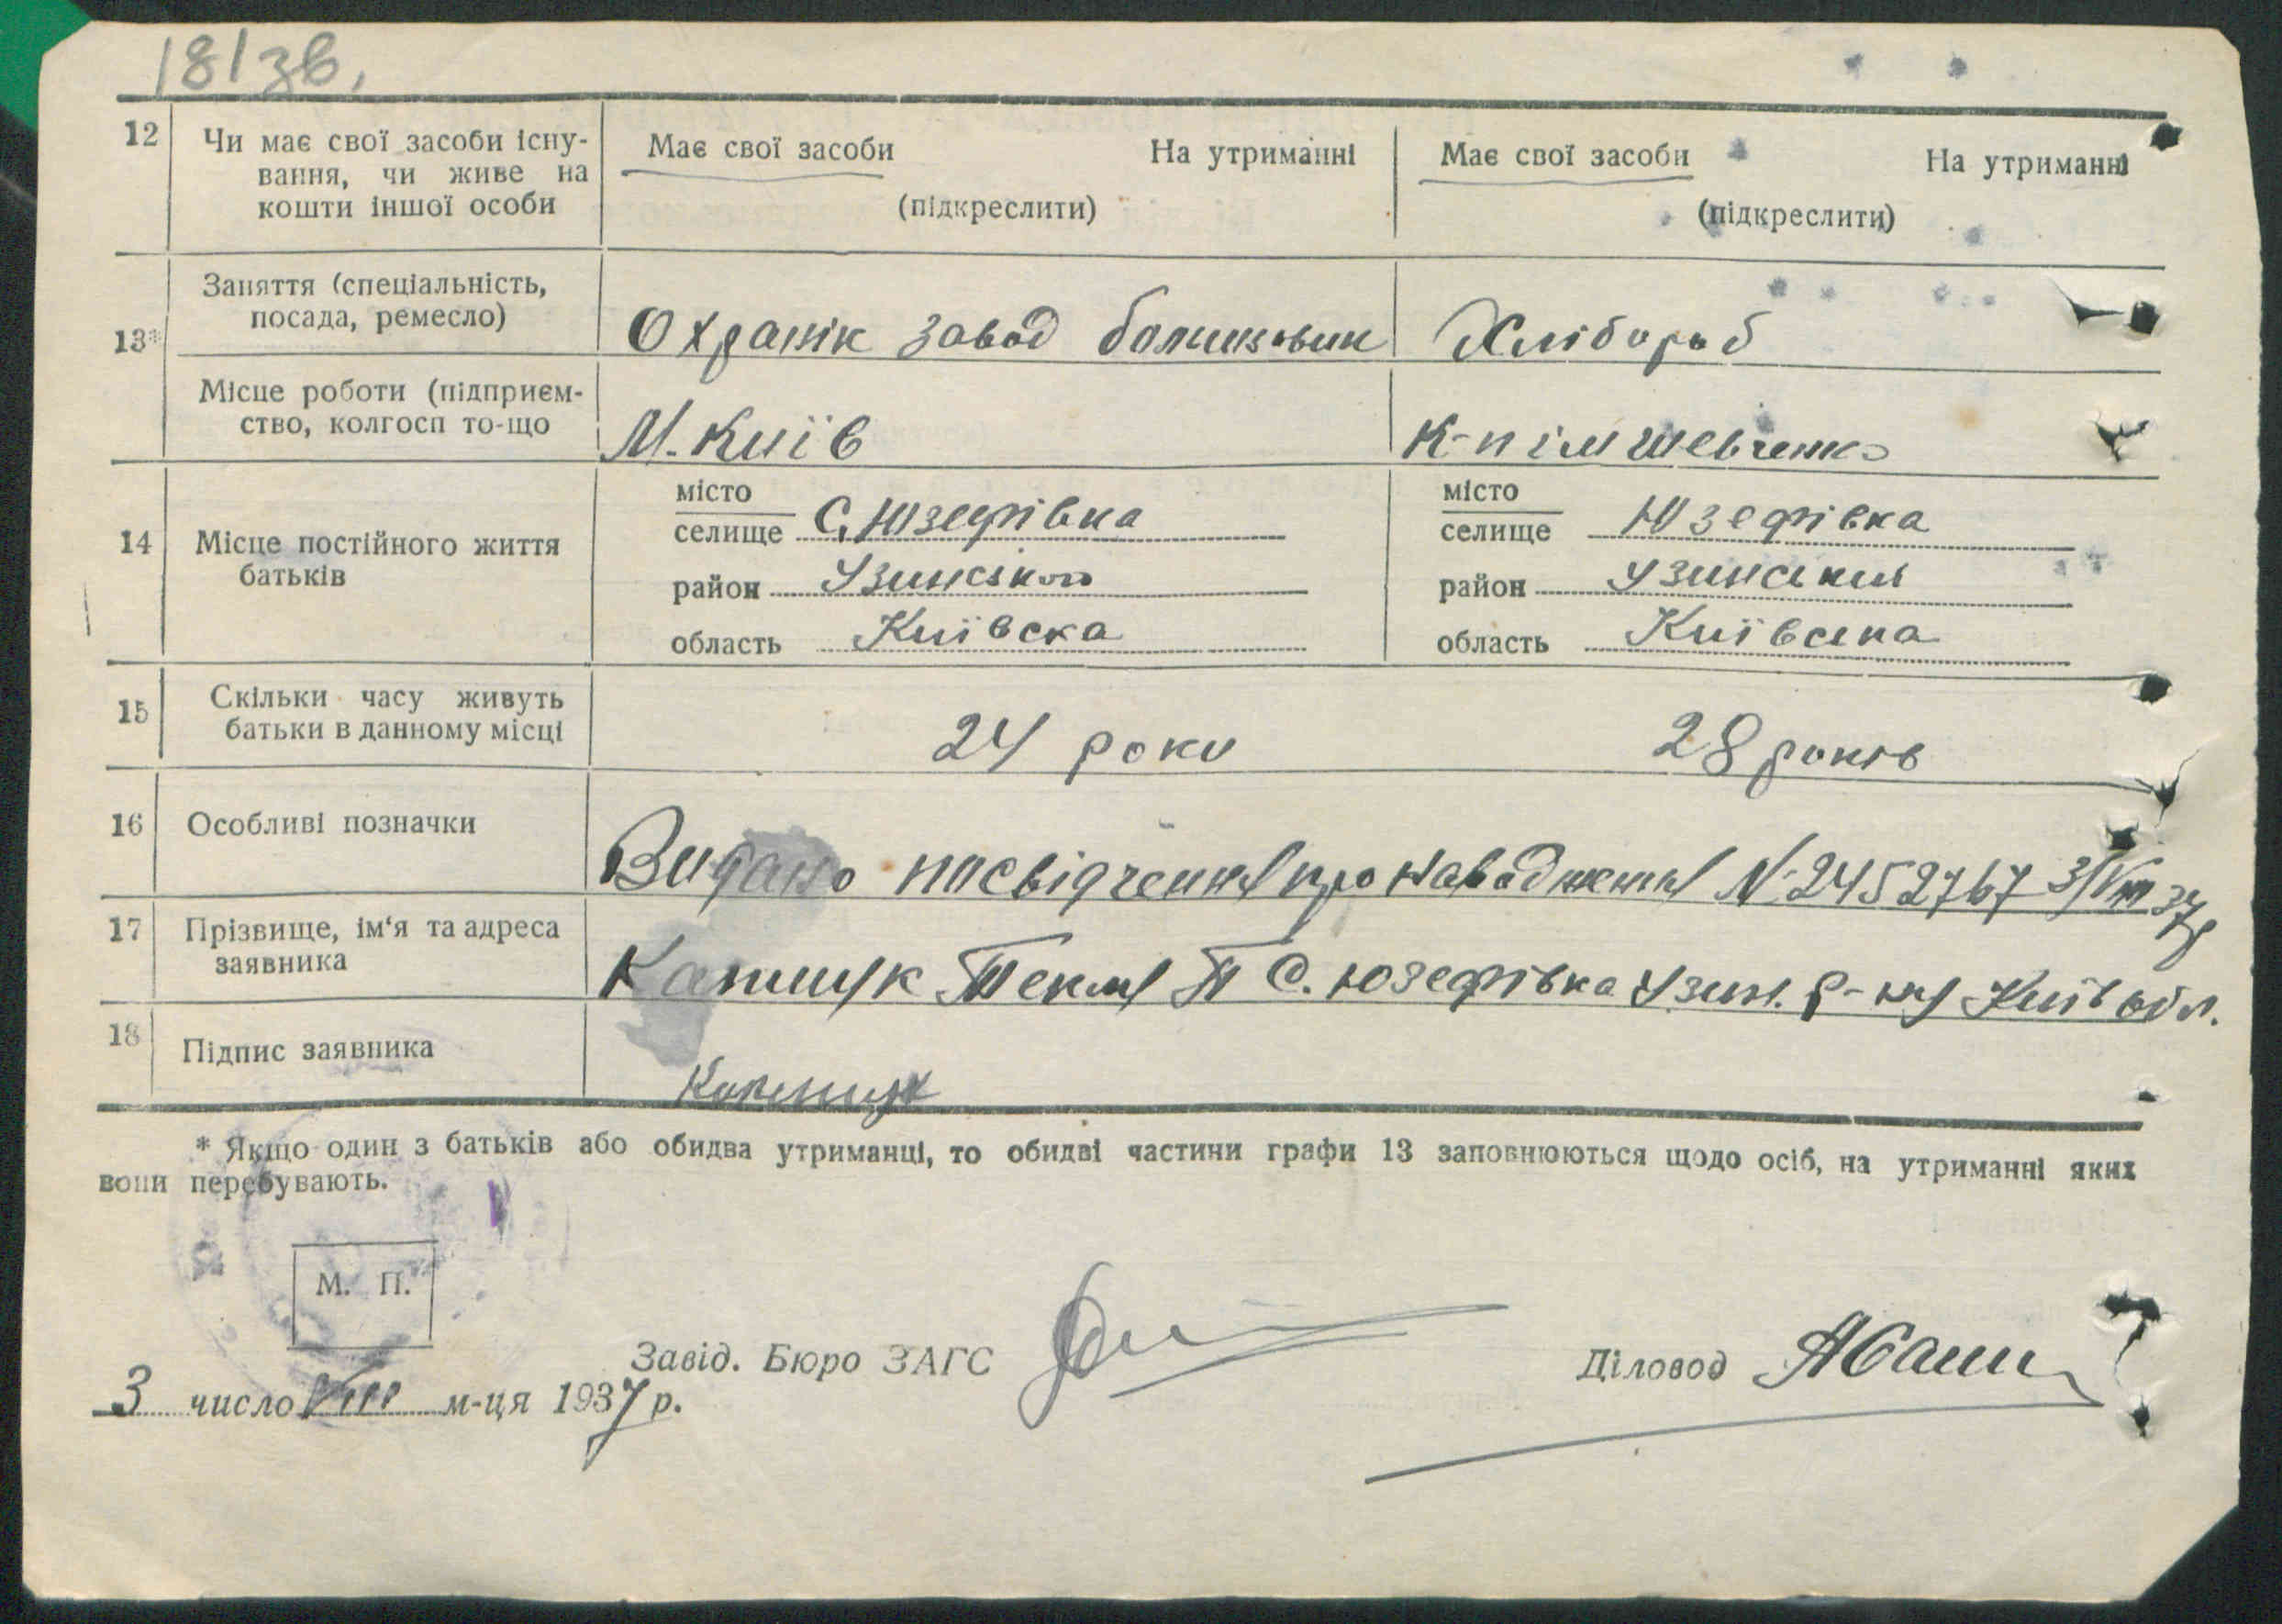 181зв.
12 Чи має свої засоби існу-
вання, чи живе на
кошти іншої особи
Має свої засоби На утриманні
(підкреслити)
Має свої засоби На утриманні
(підкреслити)
13*
Заняття (спеціальність,
посада, ремесло)
Охранік завод большовик
Хлібороб
Місце роботи (підприєм-
ство, колгосп то-що
М. Київ
К-п ім Шевченко
14 Місце постійного життя
батьків
місто
селище С. Юзефівка
район Узинский
область Київска
місто
селище Юзефівка
район Узинский
область Київска
15 Скільки часу живуть
батьки в данному місці
24 роки
28 років
16 Особливі позначки
Видано посвідчення про народження № 2452767 3/VIII 37р
17 Прізвище, ім'я та адреса
заявника
Текля П С. Юзефівка Узин. р-ну Київ обл.
18 Підпис заявника
* Якщо один з батьків або обидва утриманці, то обидві частини графи 13 заповнюються щодо осіб, на утриманні яких
вони перебувають.
М. П.
Завід. Бюро ЗАГС
Діловод
3 число VIII м-ця 1937 р.